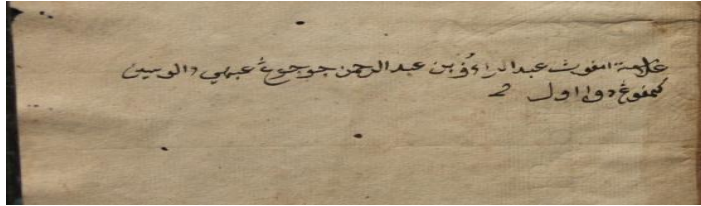 علامة امفوث عبدالراءوف بن عبدالرحمن جوجوغ عبهي دالوسين
كمفوغ دولا اول 2